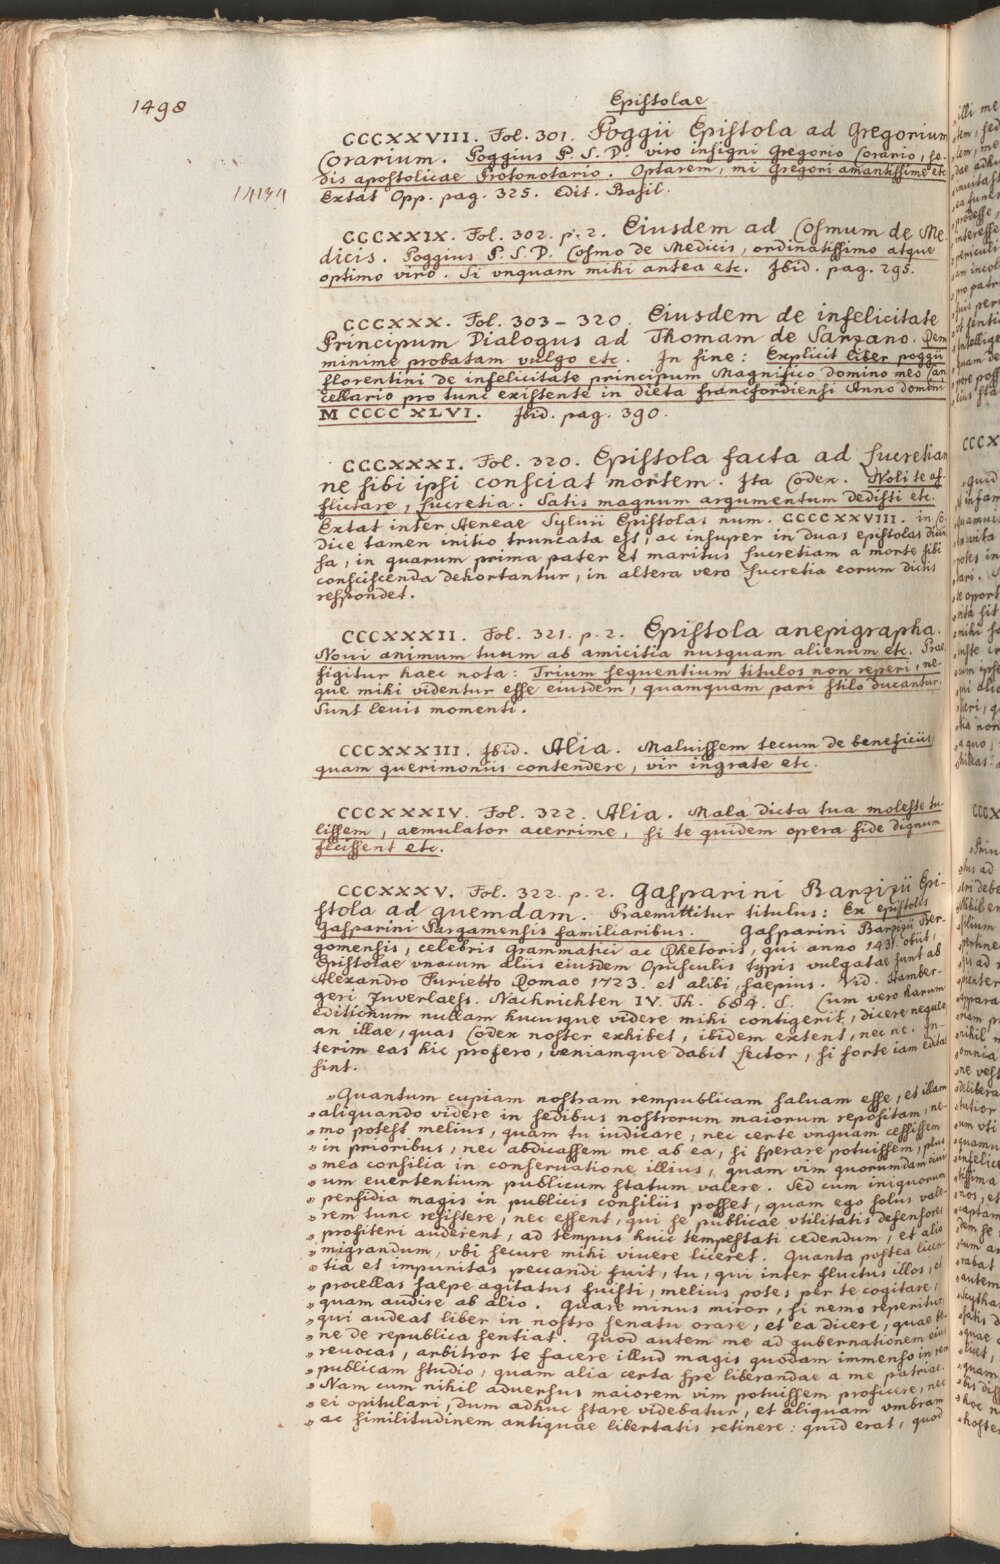 1498
Epistolae
CCCXXVIII. Fol. 301. Poggii Epistola ad Gregorium
Corarium. Poggius P. S. D. viro insigni Gregorio Corario, se-
dis apostolicae Protonotario. Optarem, mi Gregori amantissime etc
14134
Extat Opp. pag. 325. edit. Basil.
CCCXXIX. Fol. 302. p. 2. Eiusdem ad Cosmum de Me
dicis. Poggius P. S. D. Cosmo de Medicis, ordinatissimo atque
optimo viro. Si vnquam mihi antea etc. Ibid. pag. 295.
CCCXXX. Fol. 303 – 320. Eiusdem de infelicitate
Principum Dialogus ad Thomam de Sarzano. Rem
minime probatam vulgo etc. In fine: Explicit liber poggii
florentini de infelicitate principum Magnifico domino meo Can
cellario pro tunc existente in dieta francfordiensi Anno domini
M CCCC XLVI. Ibid. pag. 390.
CCCXXXI. Fol. 320. Epistola facta ad Lucretiam
ne sibi ipsi consciat mortem. Ita Codex. Noli te af
flictare, Lucretia. Satis magnum argumentum dedisti etc.
Extat inter Aeneae Sylvii Epistolas num. CCCCXXVIII. in Co
dice tamen initio truncata est, ac insuper in duas epistolas diui
sa, in quarum prima pater et maritus Lucretiam a morte sibi
consciscenda dehortantur, in altera vero Lucretia eorum dictis
respondet.
CCCXXXII. Fol. 321. p. 2. Epistola anepigrapha.
Noui animum tuum ab amicitia nusquam alienum etc. Prae
figitur haec nota: Trium sequentium titulos non reperi, ne-
que mihi videntur esse eiusdem, quamquam pari stilo ducantur.
Sunt leuis momenti.
CCCXXXIII. Ibid. Alia. Maluissem tecum de beneficiis
quam querimoniis contendere, vir ingrate etc.
CCCXXXIV. Fol. 322. Alia. Mala dicta tua moleste tu
lissem, aemulator acerrime, si te quidem opera fide dignum
fecissent etc.
CCCXXXV. Fol. 322. p. 2. Gasparini Barzizii Epi-
stola ad quemdam. Praemittitur titulus: Ex epistolis
Gasparini Pargamensis familiaribus. Gasparini Barzizii Ber-
gomensis, celebris Grammatici ac Rhetoris, qui anno 1431. obiit,
Epistolae vnacum aliis eiusdem Opusculis typis vulgatae sunt ab
Alexandro Furietto Romae 1723. et alibi saepius. Vid. Hamber-
geri Zuverlaess. Nachrichten IV. Th. 684. S. Cum vero harum
editionum nullam hucusque videre mihi contigerit, dicere nequeo
an illae, quas Codex noster exhibet, ibidem extent, nec ne. In-
terim eas hic profero, veniamque dabit Lector, si forte iam editae
sint.
„Quantum cupiam nostram rempublicam saluam esse, et illam
„aliquando videre in sedibus nostrorum maiorum repositam, ne-
„mo potest melius, quam tu iudicare, nec certe vnquam cessissem
„in prioribus, nec abdicassem me ab ea, si sperare potuissem, plus
„mea consilia in conseruatione illius, quam vim quorumdam ciui
„um euertentium publicum statum valere. Sed cum iniquorum
„perfidia magis in publicis consiliis posset, quam ego solus vale-
„rem tunc resistere, nec essent, qui se publicae vtilitatis defensores
„profiteri auderent, ad tempus huic tempestati cedendum, et alio
„migrandum, vbi secure mihi viuere liceret. Quanta postea licen-
„tia et impunitas peccandi fuit, tu, qui inter fluctus illos, et
„procellas saepe agitatus fuisti, melius potes per te cogitare,
„quam audire ab alio. Quare minus miror, si nemo reperitur,
„qui audeat liber in nostro senatu orare, et ea dicere, quae be-
„ne de republica sentiat. Quod autem me ad gubernationem eius
„reuocas, arbitror te facere illud magis quodam immenso in rem
„publicam studio, quam alia certa spe liberandae a me patriae.
„Nam cum nihil aduersus maiorem vim potuissem proficere, nec
„ei opitulari, dum adhuc stare videbatur, et aliquam vmbram
„ac similitudinem antiquae libertatis retinere: quid erat, quod